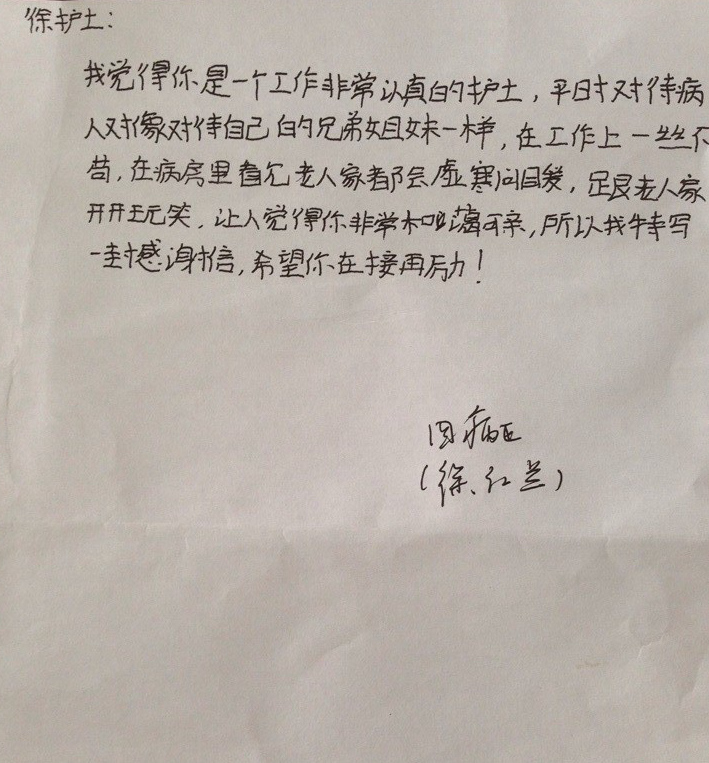 徐护士:
我觉得你是一个工作非常认真的护士,平时对待病
人对像对待自己的兄弟姐妹一样,在工作上一丝不
苟,在病房里看見老人家都会虚寒问暖,足艮老人家
开开玩笑,让人觉得你非常和蔼可亲,所以我特写
一封感谢信,希望你在接再厉力!
四病区
(徐红兰)